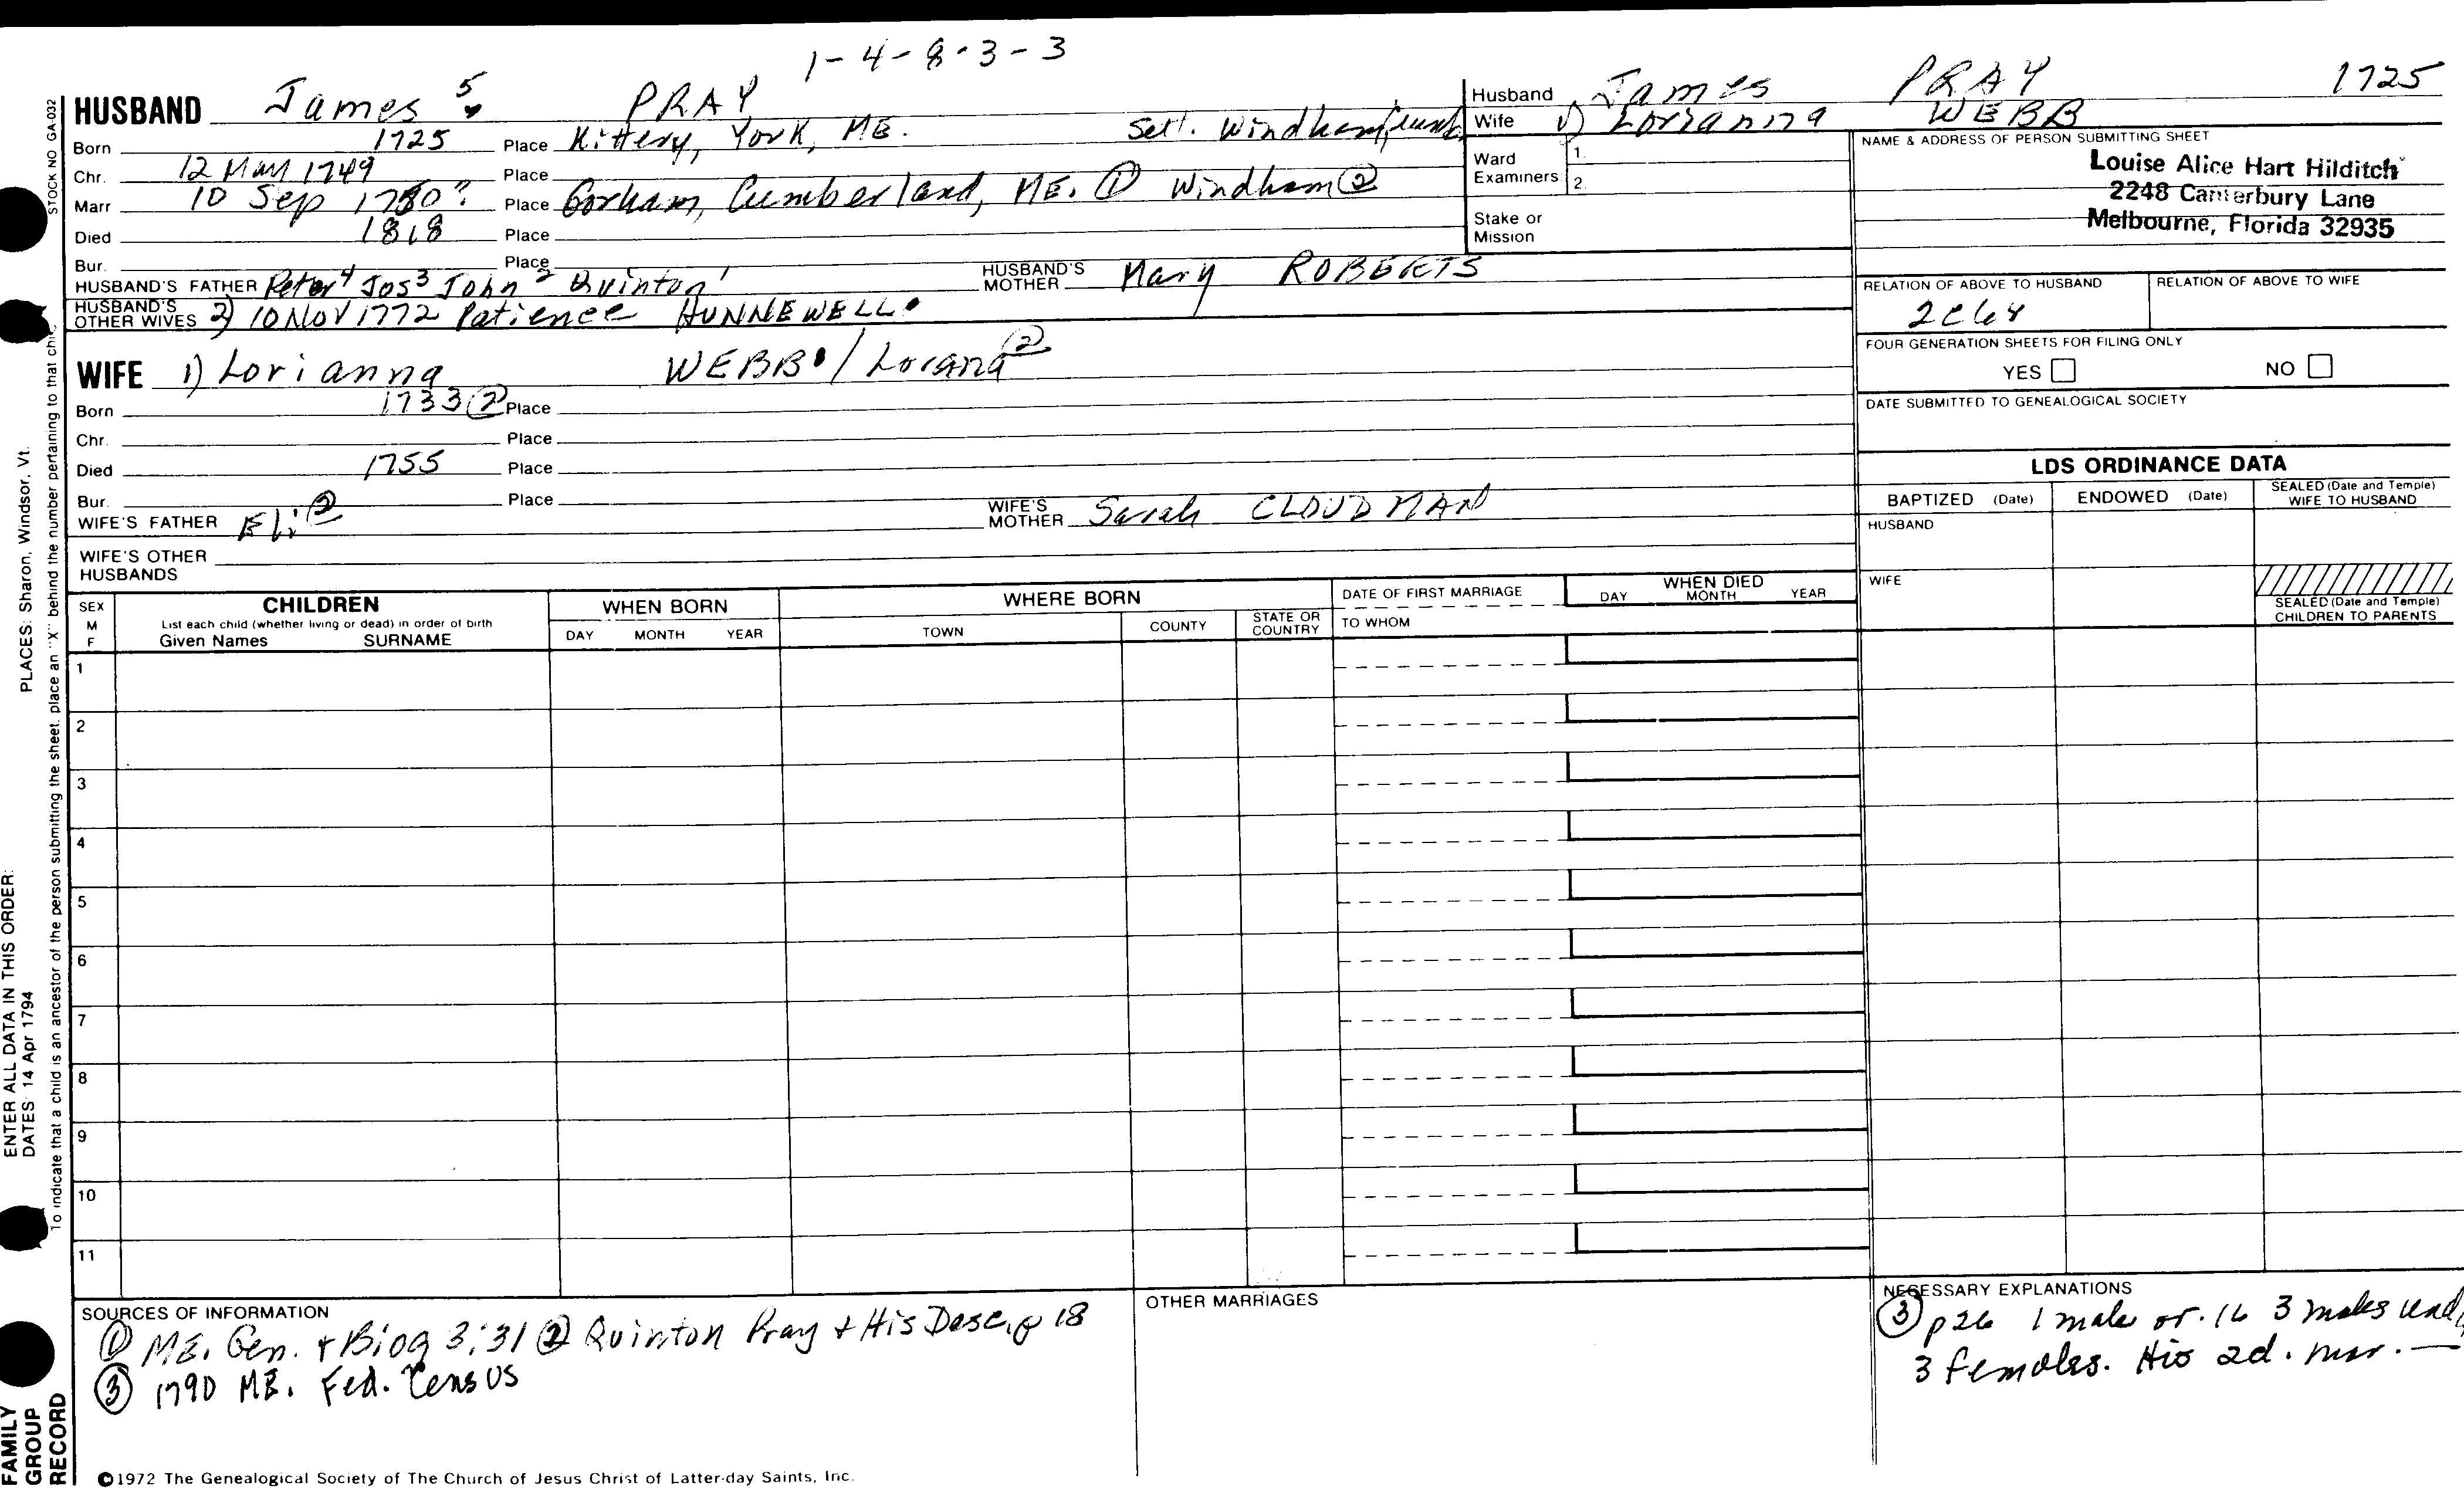 1-4-8-3-3
HUSBAND James 5 PRAY
Born 1725 Place Kittery, York, ME. Sett. Windham,
Chr. 12 May 1749 Place
Marr 10 Sep 1750? Place Gorham, Cumberland, ME. ① Windham ②
Died 1818 Place
Bur. Place
HUSBAND'S FATHER Peter 4 Jos 3 John 2 Quinton 1 HUSBAND'S MOTHER Mary ROBERTS
HUSBAND'S OTHER WIVES 2) 10 Nov 1772 Patience HUNNEWELL
WIFE 1) Lorianna WEBB / Lorana ②
Born 1733 ② Place
Chr. Place
Died 1755 Place
Bur. Place
WIFE'S FATHER Eli ② WIFE'S MOTHER Sarah CLOUDMAN
WIFE'S OTHER HUSBANDS
Husband James PRAY 1725
Wife 1) Lorianna WEBB
Ward Examiners 1. 2.
Stake or Mission
NAME & ADDRESS OF PERSON SUBMITTING SHEET
Louise Alice Hart Hilditch
2248 Canterbury Lane
Melbourne, Florida 32935
RELATION OF ABOVE TO HUSBAND RELATION OF ABOVE TO WIFE
FOUR GENERATION SHEETS FOR FILING ONLY
YES NO
DATE SUBMITTED TO GENEALOGICAL SOCIETY
LDS ORDINANCE DATA
BAPTIZED (Date) ENDOWED (Date) SEALED (Date and Temple) WIFE TO HUSBAND
HUSBAND
WIFE
SEALED (Date and Temple) CHILDREN TO PARENTS
SEX M F
CHILDREN
List each child (whether living or dead) in order of birth
Given Names SURNAME
WHEN BORN
DAY MONTH YEAR
WHERE BORN
TOWN COUNTY STATE OR COUNTRY
DATE OF FIRST MARRIAGE
TO WHOM
WHEN DIED
DAY MONTH YEAR
1
2
3
4
5
6
7
8
9
10
11
SOURCES OF INFORMATION
① ME. Gen. + Biog 3:31 ② Quinton Pray + His Desc. p 18
③ 1790 ME. Fed. Census
OTHER MARRIAGES
NECESSARY EXPLANATIONS
③ p26 1 male or. 16 3 males
3 females. His 2d. mar. —
©1972 The Genealogical Society of The Church of Jesus Christ of Latter-day Saints, Inc.
STOCK NO GA-032
To indicate that a child is an ancestor of the person submitting the sheet, place an "X" behind the number pertaining to that
PLACES: Sharon, Windsor, Vt.
ENTER ALL DATA IN THIS ORDER:
DATES: 14 Apr 1794
FAMILY GROUP RECORD